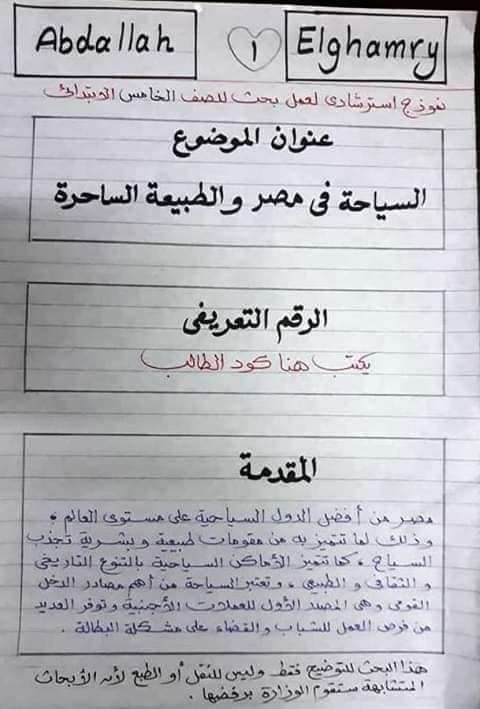 Abdallah
١
Elghamry
نموذج استرشادى لعمل بحث للصف الخامس الابتدائى
عنوان الموضوع
السياحة فى مصر والطبيعة الساحرة
الرقم التعريفى
يكتب هنا كود الطالب
المقدمة
مصر من أفضل الدول السياحية على مستوى العالم ،
وذلك لما تتميز به من مقومات طبيعية و بشرية تجذب
السياح ، كما تتميز الأماكن السياحية بالتنوع التاريخى
و الثقافى و الطبيعى ، وتعتبر السياحة من أهم مصادر الدخل
القومى وهى المصدر الأول للعملات الأجنبية و توفر العديد
من فرص العمل للشباب والقضاء على مشكلة البطالة .
هذا البحث للتوضيح فقط وليس للنقل أو الطبع لأن الأبحاث
المتشابهة ستقوم الوزارة برفضها .